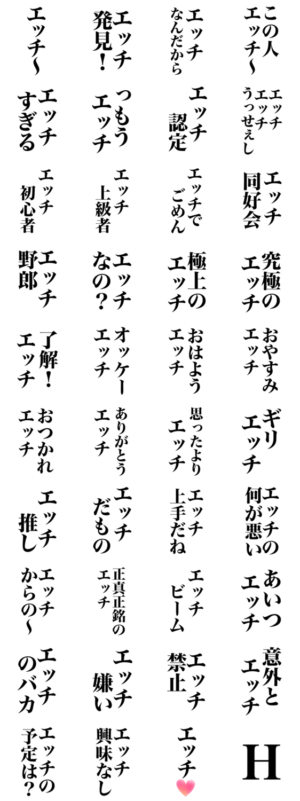 エッチ～
エッチ
発見！
エッチ
なんだから
この人
エッチ～
エッチ
すぎる
っもう
エッチ
エッチ
認定
エッチ
エッチ
うっせぇし
エッチ
初心者
エッチ
上級者
エッチで
ごめん
エッチ
同好会
エッチ
野郎
エッチ
なの？
極上の
エッチ
究極の
エッチ
了解！
エッチ
オッケー
エッチ
おはよう
エッチ
おやすみ
エッチ
おつかれ
エッチ
ありがとう
エッチ
思ったより
エッチ
ギリ
エッチ
エッチ
推し
エッチ
だもの
エッチ
上手だね
エッチの
何が悪い
エッチ
からの～
正真正銘の
エッチ
エッチ
ビーム
あいつ
エッチ
エッチ
のバカ
エッチ
嫌い
エッチ
禁止
意外と
エッチ
エッチの
予定は？
エッチ
興味なし
エッチ
H